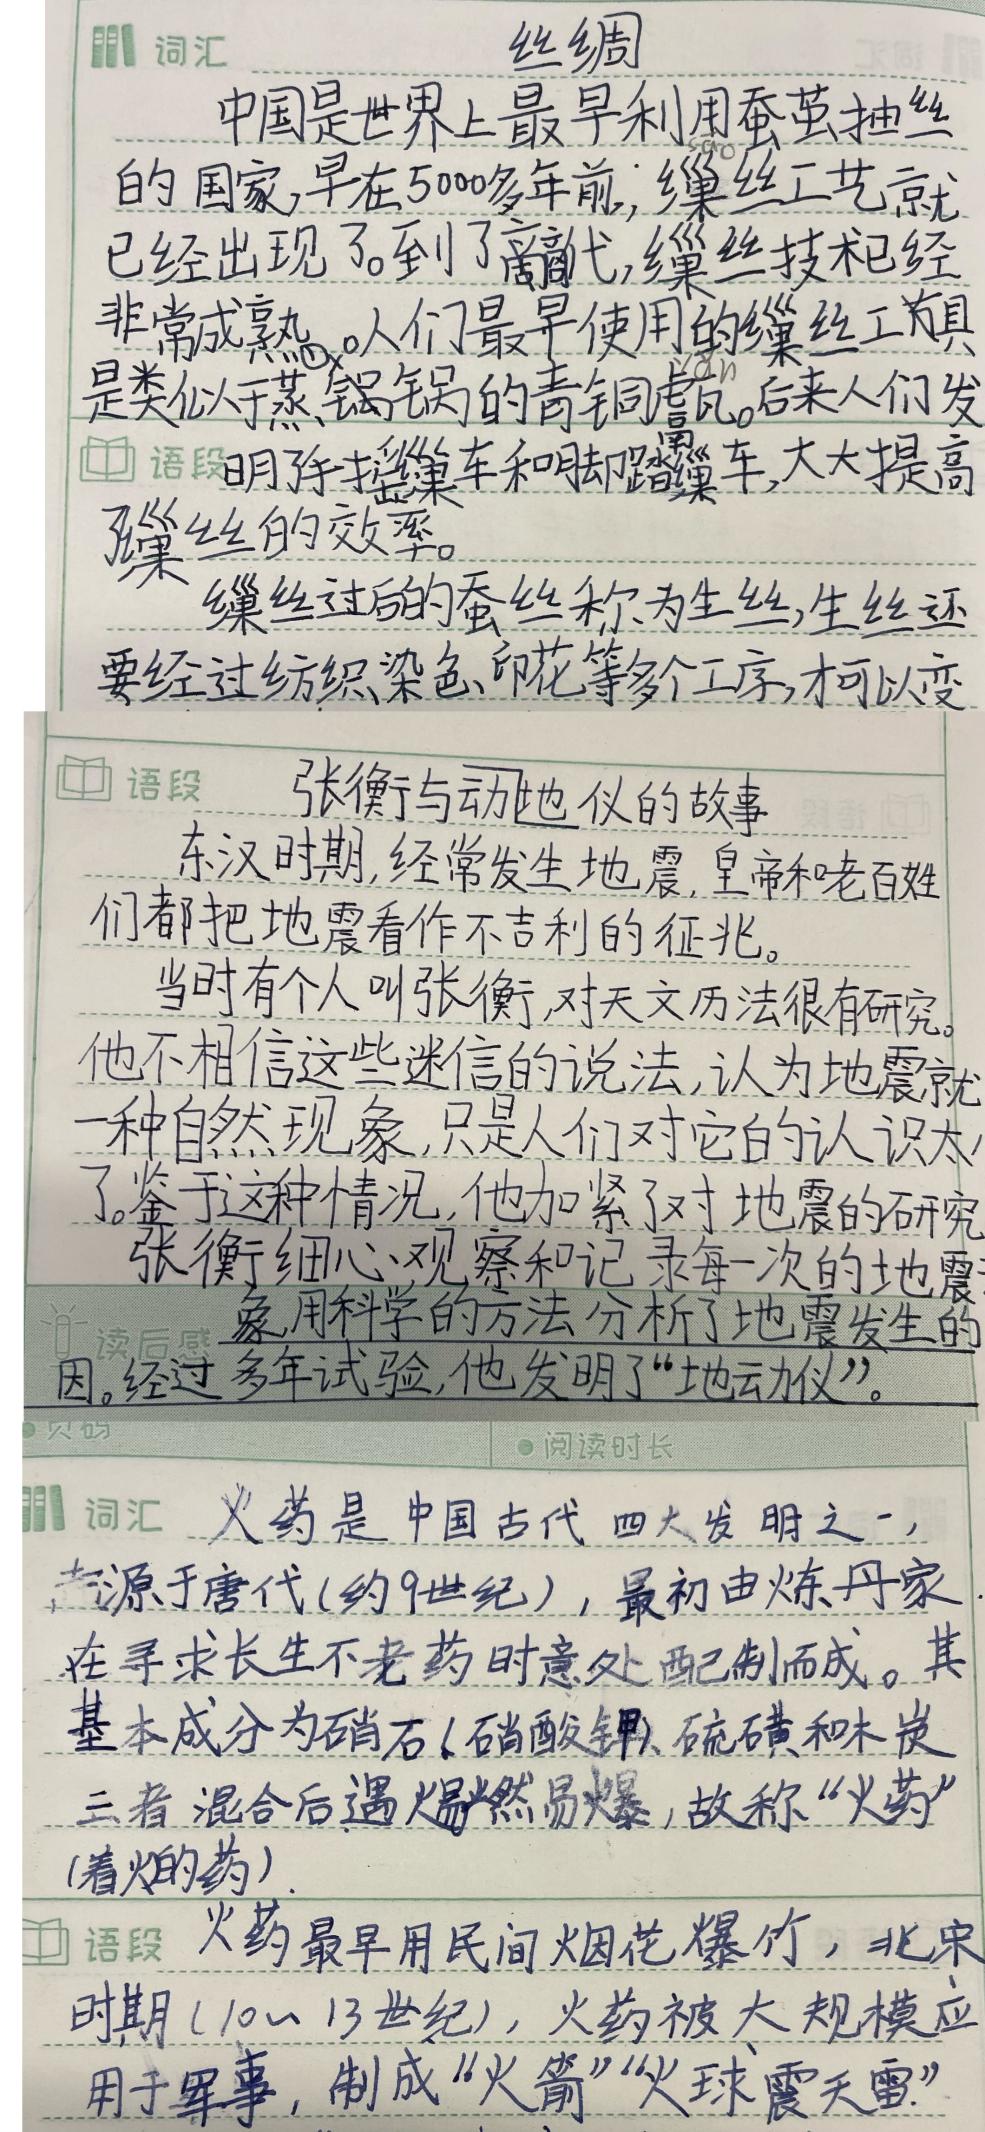 词汇 丝绸
中国是世界上最早利用蚕茧抽丝
的国家,早在5000多年前,缫丝工艺就
已经出现了。到了商代,缫丝技术已经
非常成熟。人们最早使用的缫丝工具
是类似于蒸锅的青铜甗。后来人们发
语段 明了手摇缫车和脚踏缫车,大大提高
了缫丝的效率。
缫丝过后的蚕丝称为生丝,生丝还
要经过纺织、染色、印花等多个工序,才可以变
语段 张衡与动地仪的故事
东汉时期,经常发生地震,皇帝和老百姓
们都把地震看作不吉利的征兆。
当时有个人叫张衡,对天文历法很有研究。
他不相信这些迷信的说法,认为地震就
一种自然现象,只是人们对它的认识太
了。鉴于这种情况,他加紧了对地震的研究
张衡细心观察和记录每一次的地震
读后感 象,用科学的方法分析了地震发生的
因。经过多年试验,他发明了“地动仪”。
页码 阅读时长
词汇 火药是中国古代四大发明之一,
源于唐代(约9世纪),最初由炼丹家
在寻求长生不老药时意处配制而成。其
基本成分为硝石(硝酸钾)、硫磺和木炭
三者混合后遇易燃易爆,故称“火药”
(着火的药).
语段 火药最早用民间烟花爆竹,北宋
时期(10~13世纪),火药被大规模应
用于军事,制成“火箭”“火球震天雷”